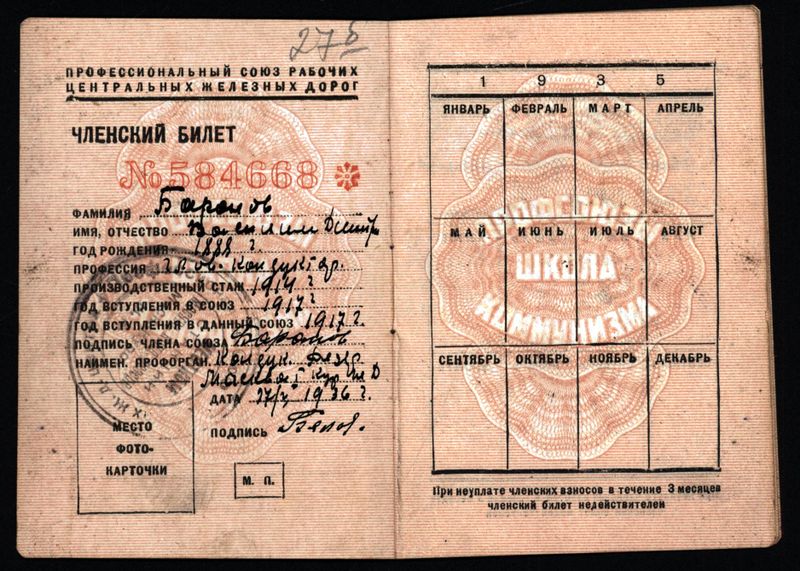 27б
ПРОФЕССИОНАЛЬНЫЙ СОЮЗ РАБОЧИХ
ЦЕНТРАЛЬНЫХ ЖЕЛЕЗНЫХ ДОРОГ
ЧЛЕНСКИЙ БИЛЕТ
№584668
ФАМИЛИЯ Баранов
ИМЯ, ОТЧЕСТВО Василий Дмитр
ГОД РОЖДЕНИЯ 1888 г.
ПРОФЕССИЯ Глав. Кондуктор.
ПРОИЗВОДСТВЕННЫЙ СТАЖ 1914 г
ГОД ВСТУПЛЕНИЯ В СОЮЗ 1917 г
ГОД ВСТУПЛЕНИЯ В ДАННЫЙ СОЮЗ 1917 г.
ПОДПИСЬ ЧЛЕНА СОЮЗА Баранов
НАИМЕН. ПРОФОРГАН. Кондук. резер
Москва I Кур
ДАТА 27/X 1936 г.
ПОДПИСЬ
МЕСТО
ФОТО-
КАРТОЧКИ
М. П.
1 9 3 5
ЯНВАРЬ ФЕВРАЛЬ МАРТ АПРЕЛЬ
МАЙ ИЮНЬ ИЮЛЬ АВГУСТ
СЕНТЯБРЬ ОКТЯБРЬ НОЯБРЬ ДЕКАБРЬ
ПРОФСОЮЗЫ
ШКОЛА
КОММУНИЗМА
При неуплате членских взносов в течение 3 месяцев
членский билет недействителен